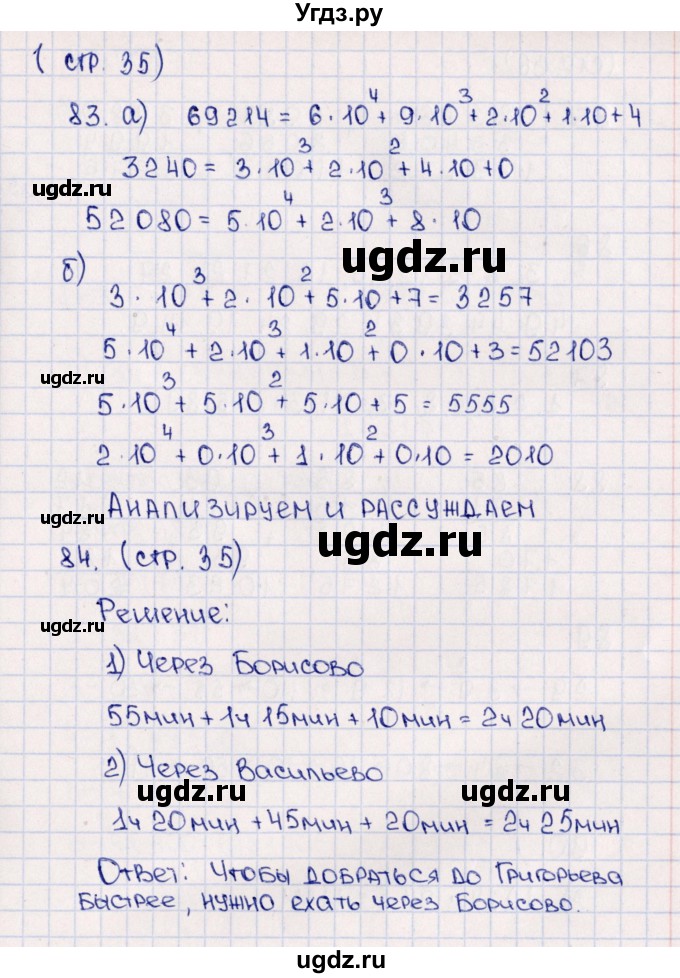 Угдз.ру
( стр. 35)
83. а) 69214 = 6·10⁴ + 9·10³ + 2·10² + 1·10 + 4
3240 = 3·10³ + 2·10² + 4·10 + 0
ugdz.ru
52080 = 5·10⁴ + 2·10³ + 8·10
ugdz.ru
б)
3·10³ + 2·10² + 5·10 + 7 = 3257
5·10⁴ + 2·10³ + 1·10² + 0·10 + 3 = 52103
ugdz.ru
5·10³ + 5·10² + 5·10 + 5 = 5555
2·10⁴ + 0·10³ + 1·10² + 0·10 = 2010
Анализируем и рассуждаем
ugdz.ru
ugdz.ru
84. (стр. 35)
Решение:
ugdz.ru
1) Через Борисово
55мин + 1ч 15мин + 10мин = 2ч 20мин
2) Через Васильево
ugdz.ru
ugdz.ru
1ч 20мин + 45мин + 20мин = 2ч 25мин
Ответ: чтобы добраться до Григорьева
быстрее, нужно ехать через Борисово.
ugdz.ru